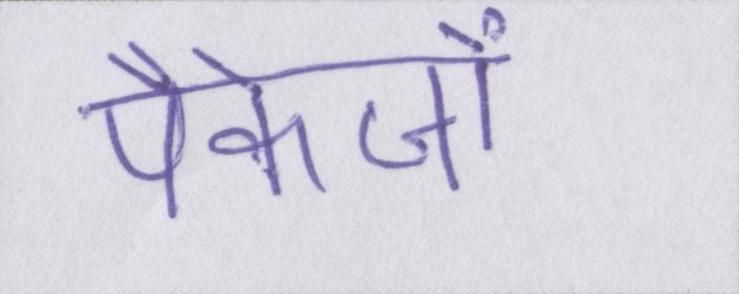 पैकेजों